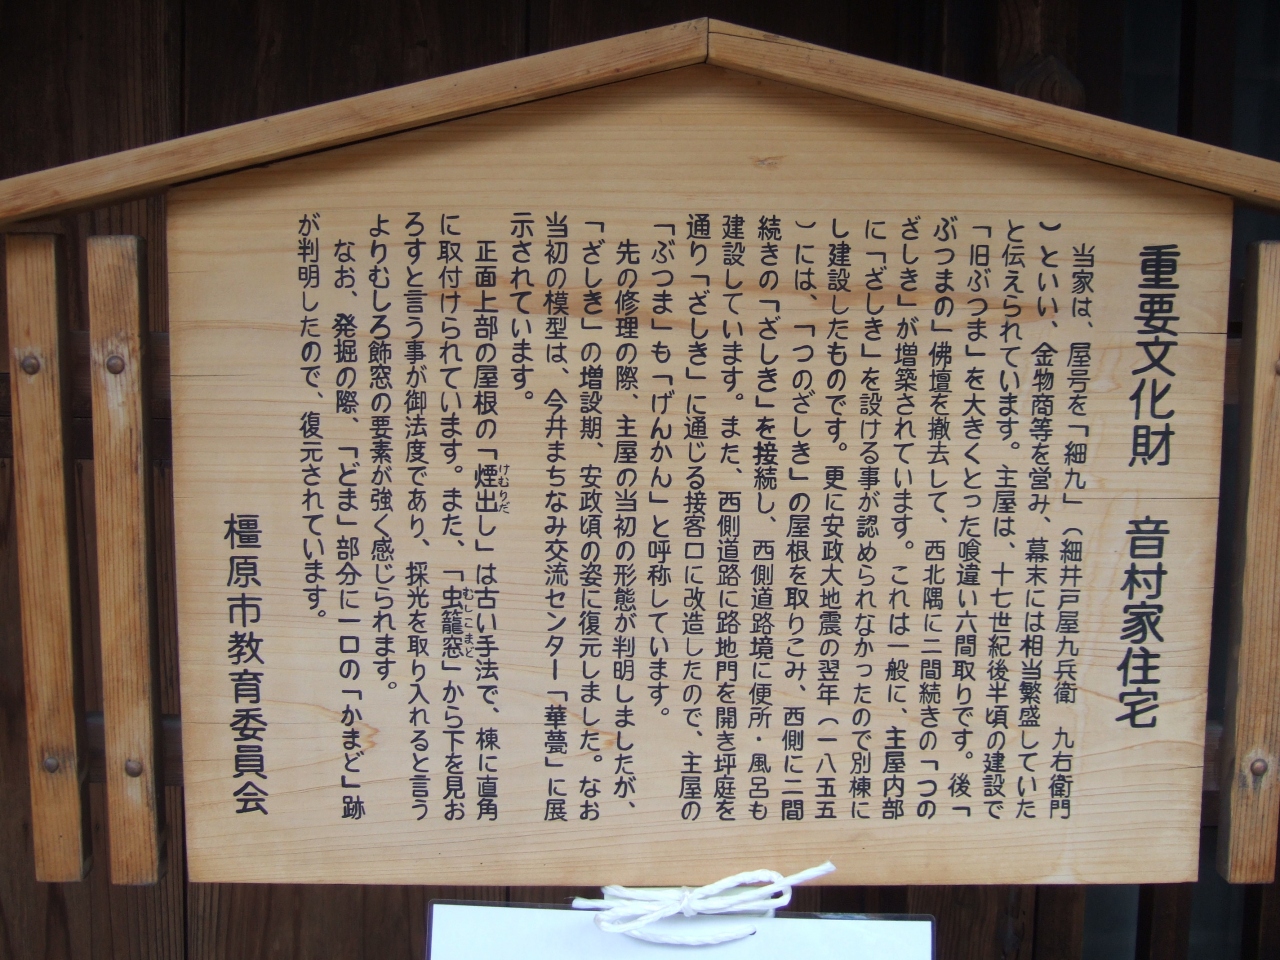 重要文化財　音村家住宅
当家は、屋号を「細九」（細井戸屋九兵衛　九右衛門
）といい、金物商等を営み、幕末には相当繁盛していた
と伝えられています。主屋は、十七世紀後半頃の建設で
「旧ぶつま」を大きくとった喰違い六間取りです。後「
ぶつまの」佛壇を撤去して、西北隅に二間続きの「つの
ざしき」が増築されています。これは一般に、主屋内部
に「ざしき」を設ける事が認められなかったので別棟に
し建設したものです。更に安政大地震の翌年（一八五五
）には、「つのざしき」の屋根を取りこみ、西側に二間
続きの「ざしき」を接続し、西側道路境に便所・風呂も
建設しています。また、西側道路に路地門を開き坪庭を
通り「ざしき」に通じる接客口に改造したので、主屋の
「ぶつま」も「げんかん」と呼称しています。
先の修理の際、主屋の当初の形態が判明しましたが、
「ざしき」の増設期、安政頃の姿に復元しました。なお
当初の模型は、今井まちなみ交流センター「華甍」に展
示されています。
正面上部の屋根の「煙出し」は古い手法で、棟に直角
けむりだ
に取付けられています。また、「虫籠窓」から下を見お
むしこまど
ろすと言う事が御法度であり、採光を取り入れると言う
よりむしろ飾窓の要素が強く感じられます。
なお、発掘の際、「どま」部分に一ロの「かまど」跡
が判明したので、復元されています。
橿原市教育委員会